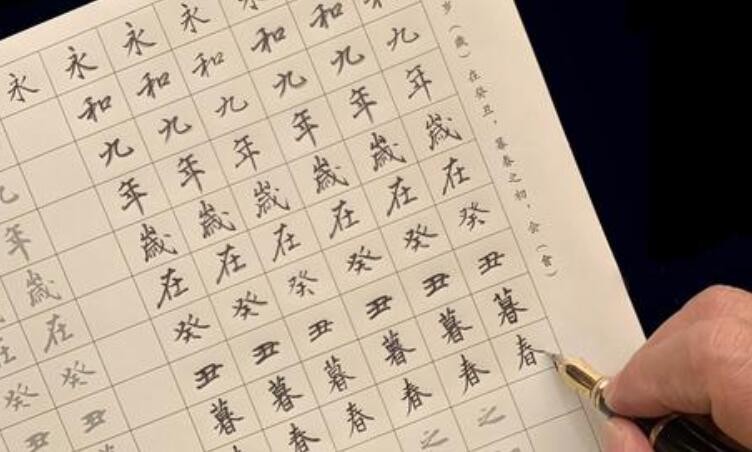 岁（歲）在癸丑，暮春之初，会（會）
九年歲在癸丑暮春
和九年歲在癸丑暮春之
永和九年歲在癸丑暮春之
永和九年歲在癸丑暮春
永和九年歲在癸丑暮春
永和九年歲在癸丑暮
永
年歲在癸丑
在癸丑